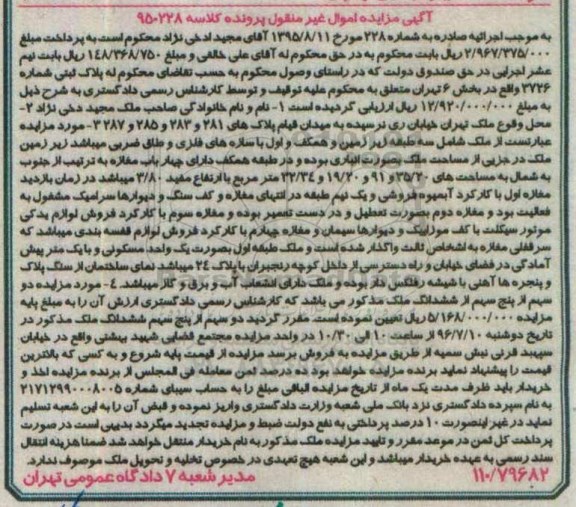 آگهی مزایده اموال غیر منقول پرونده کلاسه ۹۵۰۲۲۸
به موجب اجرائیه صادره به شماره ۲۲۸ مورخ ۱۳۹۵/۸/۱۱ آقای مجید ادخی نژاد محکوم است به پرداخت مبلغ
۲/۹۶۷/۳۷۵/۰۰۰ ریال بابت محکوم به در حق محکوم له آقای علی خالقی و مبلغ ۱۴۸/۳۶۸/۷۵۰ ریال بابت نیم
عشر اجرایی در حق صندوق دولت که در راستای وصول محکوم به حسب تقاضای محکوم له پلاک ثبتی شماره
۳۷۲۶ واقع در بخش ۶ تهران متعلق به محکوم علیه توقیف و توسط کارشناس رسمی دادگستری به شرح ذیل
به مبلغ ۱۲/۹۲۰/۰۰۰/۰۰۰ ریال ارزیابی گردیده است ۱- نام و نام خانوادگی صاحب ملک مجید دخی نژاد ۲-
محل وقوع ملک تهران خیابان ری نرسیده به میدان قیام پلاک های ۲۸۱ و ۲۸۳ و ۲۸۵ و ۲۸۷ ۳- مورد مزایده
عبارتست از ملک شامل سه طبقه زیر زمین و همکف و اول با سازه های فلزی و طاق ضربی میباشد زیر زمین
ملک در جزیی از مساحت ملک بصورت انباری بوده و در طبقه همکف دارای چهار باب مغازه به ترتیب از جنوب
به شمال به مساحت های ۳۵/۲۰ و ۹۱ و ۱۹/۲۰ و ۲۲/۳۴ متر مربع با ارتفاع مفید ۳/۸۰ میباشد در زمان بازدید
مغازه اول با کارکرد آبمیوه فروشی و یک نیم طبقه در انتهای مغازه و کف سنگ و دیوارها سرامیک مشغول به
فعالیت بود و مغازه دوم بصورت تعطیل و در دست تعمیر بوده و مغازه سوم با کارکرد فروش لوازم یدکی
موتور سیکلت با کف موزاییک و دیوارها سیمان و مغازه چهارم با کارکرد فروش لوازم قفسه بندی میباشد که
سرقفلی مغازه به اشخاص ثالث واگذار شده است و ملک طبقه اول بصورت یک واحد مسکونی و با یک متر پیش
آمادگی در فضای خیابان و راه دسترسی از داخل کوچه رنجبران با پلاک ۲۴ میباشد نمای ساختمان از سنگ پلاک
و پنجره ها آهنی با شیشه رفلکس دار بوده و ملک دارای انشعاب آب و برق و گاز میباشد. ۴- مورد مزایده دو
سهم از پنج سهم از ششدانگ ملک مذکور می باشد که کارشناس رسمی دادگستری ارزش آن را به مبلغ پایه
مزایده ۵/۱۶۸/۰۰۰/۰۰۰ ریال تعیین نموده است. مقرر گردید دو سهم از پنج سهم ششدانگ ملک مذکور در
تاریخ دوشنبه ۹۶/۷/۱۰ از ساعت ۱۰ الی ۱۰/۳۰ در واحد مزایده مجتمع قضایی شهید بهشتی واقع در خیابان
سپهبد قرنی نبش سمیه از طریق مزایده به فروش برسد مزایده از قیمت پایه شروع و به کسی که بالاترین
قیمت را پیشنهاد نماید برنده مزایده خواهد بود ده درصد ثمن معامله فی المجلس از برنده مزایده اخذ و
خریدار باید ظرف مدت یک ماه از تاریخ مزایده الباقی مبلغ را به حساب سیبای شماره ۲۱۷۱۲۹۹۰۰۰۸۰۰۵
به نام سپرده دادگستری نزد بانک ملی شعبه وزارت دادگستری واریز نموده و قبض آن را به این شعبه تسلیم
نماید در غیر اینصورت ۱۰ درصد پرداختی به نفع دولت ضبط و مزایده تجدید میگردد بدیهی است در صورت
پرداخت کل ثمن در موعد مقرر و تایید مزایده ملک مذکور به نام خریدار منتقل خواهد شد ضمنا هزینه انتقال
سند رسمی به عهده خریدار میباشد و این شعبه هیچ تعهدی در خصوص تخلیه و تحویل ملک موصوف ندارد.
۱۱۰/۷۹۶۸۲ مدیر شعبه ۷ دادگاه عمومی تهران